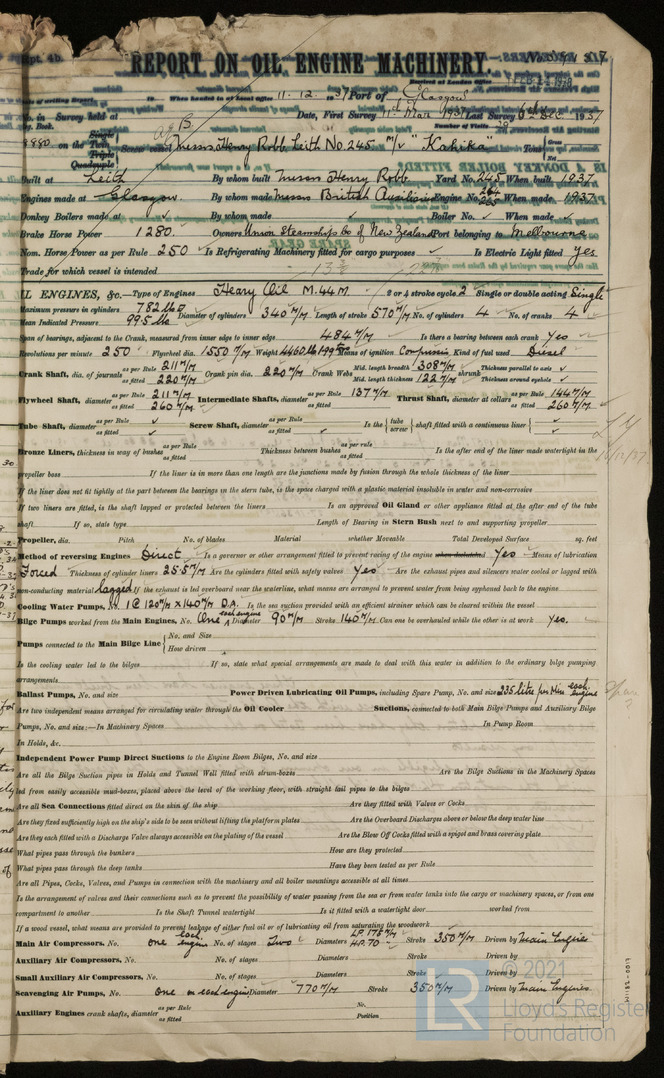 Rpt. 4b.
REPORT ON OIL ENGINE MACHINERY.
Received at London Office
When handed in at Local Office 11. 12. 1937 Port of Glasgow
No. in Survey held at Date, First Survey 11th Mar 1937 Last Survey 6th Dec. 1937
Reg. Book. Number of Visits
Single
8880 on the Twin Screw Messrs Henry Robb Leith No. 245 m/v "Kakika" Tons Gross
Triple Net
Quadruple
Built at Leith By whom built Messrs Henry Robb Yard No. 245 When built 1937
Engines made at Glasgow By whom made Messrs British Auxiliaries Engine No. 264 265 When made 1937
Donkey Boilers made at By whom made Boiler No. When made
Brake Horse Power 1280 Owners Union Steamship Co of New Zealand Port belonging to Melbourne
Nom. Horse Power as per Rule 250 Is Refrigerating Machinery fitted for cargo purposes Is Electric Light fitted Yes
Trade for which vessel is intended
OIL ENGINES, &c.—Type of Engines Heavy Oil M.44M 2 or 4 stroke cycle 2 Single or double acting Single
Maximum pressure in cylinders 782 lbs Diameter of cylinders 340 m/m Length of stroke 570 m/m No. of cylinders 4 No. of cranks 4
Mean Indicated Pressure 99.5 lbs
Span of bearings, adjacent to the Crank, measured from inner edge to inner edge 484 m/m Is there a bearing between each crank Yes
Revolutions per minute 250 Flywheel dia. 1550 m/m Weight 4460 lb Means of ignition Compression Kind of fuel used Diesel
Crank Shaft, dia. of journals as per Rule 211 m/m as fitted 220 m/m Crank pin dia. 220 m/m Crank Webs Mid. length breadth 308 m/m Mid. length thickness 122 m/m shrunk Thickness parallel to axis Thickness around eyehole
Flywheel Shaft, diameter as per Rule 211 m/m as fitted 260 m/m Intermediate Shafts, diameter as per Rule 137 m/m as fitted Thrust Shaft, diameter at collars as per Rule 144 m/m as fitted 260 m/m
Tube Shaft, diameter as per Rule as fitted Screw Shaft, diameter as per Rule as fitted Is the { tube screw } shaft fitted with a continuous liner {
Bronze Liners, thickness in way of bushes as per Rule as fitted Thickness between bushes as per rule as fitted Is the after end of the liner made watertight in the
propeller boss If the liner is in more than one length are the junctions made by fusion through the whole thickness of the liner
If the liner does not fit tightly at the part between the bearings in the stern tube, is the space charged with a plastic material insoluble in water and non-corrosive
If two liners are fitted, is the shaft lapped or protected between the liners Is an approved Oil Gland or other appliance fitted at the after end of the tube
shaft If so, state type Length of Bearing in Stern Bush next to and supporting propeller
Propeller, dia. Pitch No. of blades Material whether Moveable Total Developed Surface sq. feet
Method of reversing Engines Direct Is a governor or other arrangement fitted to prevent racing of the engine when declutched Yes Means of lubrication
Forced Thickness of cylinder liners 25.5 m/m Are the cylinders fitted with safety valves Yes Are the exhaust pipes and silencers water cooled or lagged with
non-conducting material lagged If the exhaust is led overboard near the waterline, what means are arranged to prevent water from being syphoned back to the engine
Cooling Water Pumps, No. 1 @ 120 m/m x 140 m/m D.A. Is the sea suction provided with an efficient strainer which can be cleared within the vessel
Bilge Pumps worked from the Main Engines, No. One each engine Diameter 90 m/m Stroke 140 m/m Can one be overhauled while the other is at work Yes.
Pumps connected to the Main Bilge Line { No. and Size
How driven
Is the cooling water led to the bilges If so, state what special arrangements are made to deal with this water in addition to the ordinary bilge pumping
arrangements
Ballast Pumps, No. and size Power Driven Lubricating Oil Pumps, including Spare Pump, No. and size 235 litre per Min each engine
Are two independent means arranged for circulating water through the Oil Cooler Suctions, connected to both Main Bilge Pumps and Auxiliary Bilge
Pumps, No. and size:—In Machinery Spaces In Pump Room
In Holds, &c.
Independent Power Pump Direct Suctions to the Engine Room Bilges, No. and size
Are all the Bilge Suction pipes in Holds and Tunnel Well fitted with strum-boxes Are the Bilge Suctions in the Machinery Spaces
led from easily accessible mud-boxes, placed above the level of the working floor, with straight tail pipes to the bilges
Are all Sea Connections fitted direct on the skin of the ship Are they fitted with Valves or Cocks
Are they fixed sufficiently high on the ship's side to be seen without lifting the platform plates Are the Overboard Discharges above or below the deep water line
Are they each fitted with a Discharge Valve always accessible on the plating of the vessel Are the Blow Off Cocks fitted with a spigot and brass covering plate
What pipes pass through the bunkers How are they protected
What pipes pass through the deep tanks Have they been tested as per Rule
Are all Pipes, Cocks, Valves, and Pumps in connection with the machinery and all boiler mountings accessible at all times
Is the arrangement of valves and their connections such as to prevent the possibility of water passing from the sea or from water tanks into the cargo or machinery spaces, or from one
compartment to another Is the Shaft Tunnel watertight Is it fitted with a watertight door worked from
If a wood vessel, what means are provided to prevent leakage of either fuel oil or lubricating oil from saturating the woodwork
Main Air Compressors, No. one each engine No. of stages Two Diameters LP. 175 m/m HP. 70 " Stroke 350 m/m Driven by Main Engines
Auxiliary Air Compressors, No. No. of stages Diameters Stroke Driven by
Small Auxiliary Air Compressors, No. No. of stages Diameters Stroke Driven by
Scavenging Air Pumps, No. one on each engine Diameter 770 m/m Stroke 350 m/m Driven by Main Engines.
Auxiliary Engines crank shafts, diameter as per Rule as fitted No. Position
© 2021
Lloyd's Register
Foundation